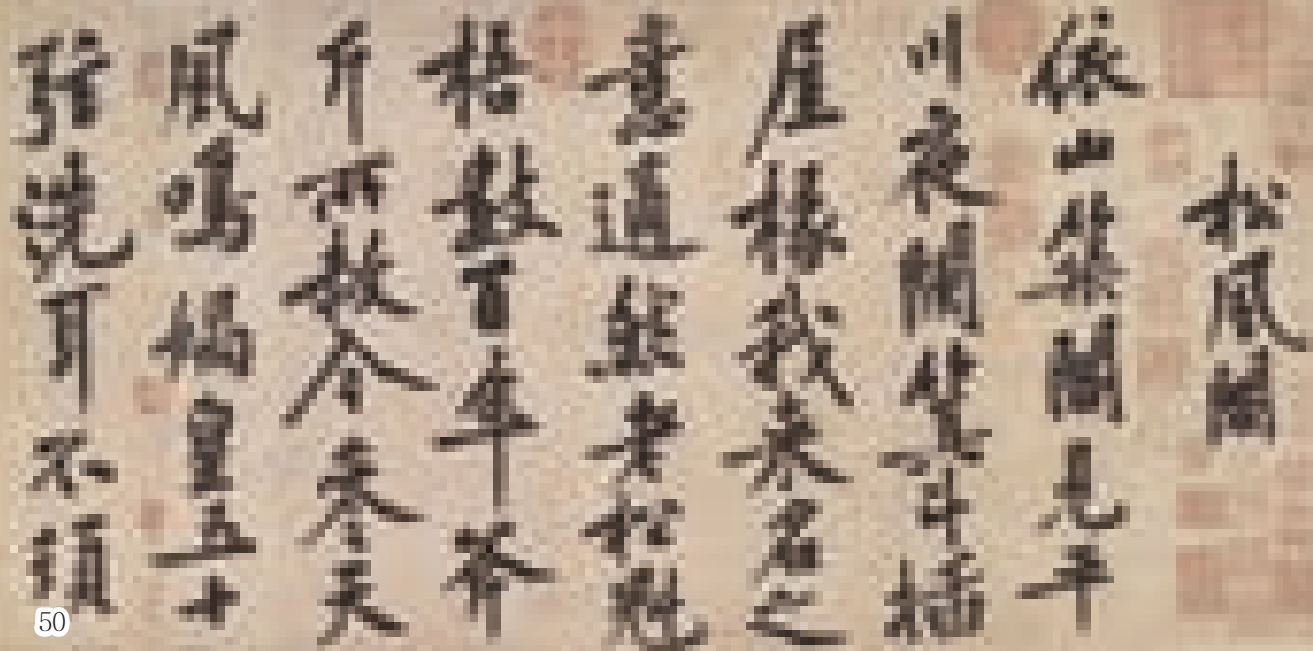 松風閣
依山築閣見平
川夜闌箕斗插
屋椽我來名之
意適然老松魁
梧數百年斧
斤所赦今參天
風鳴媧皇五十
弦洗耳不須
50